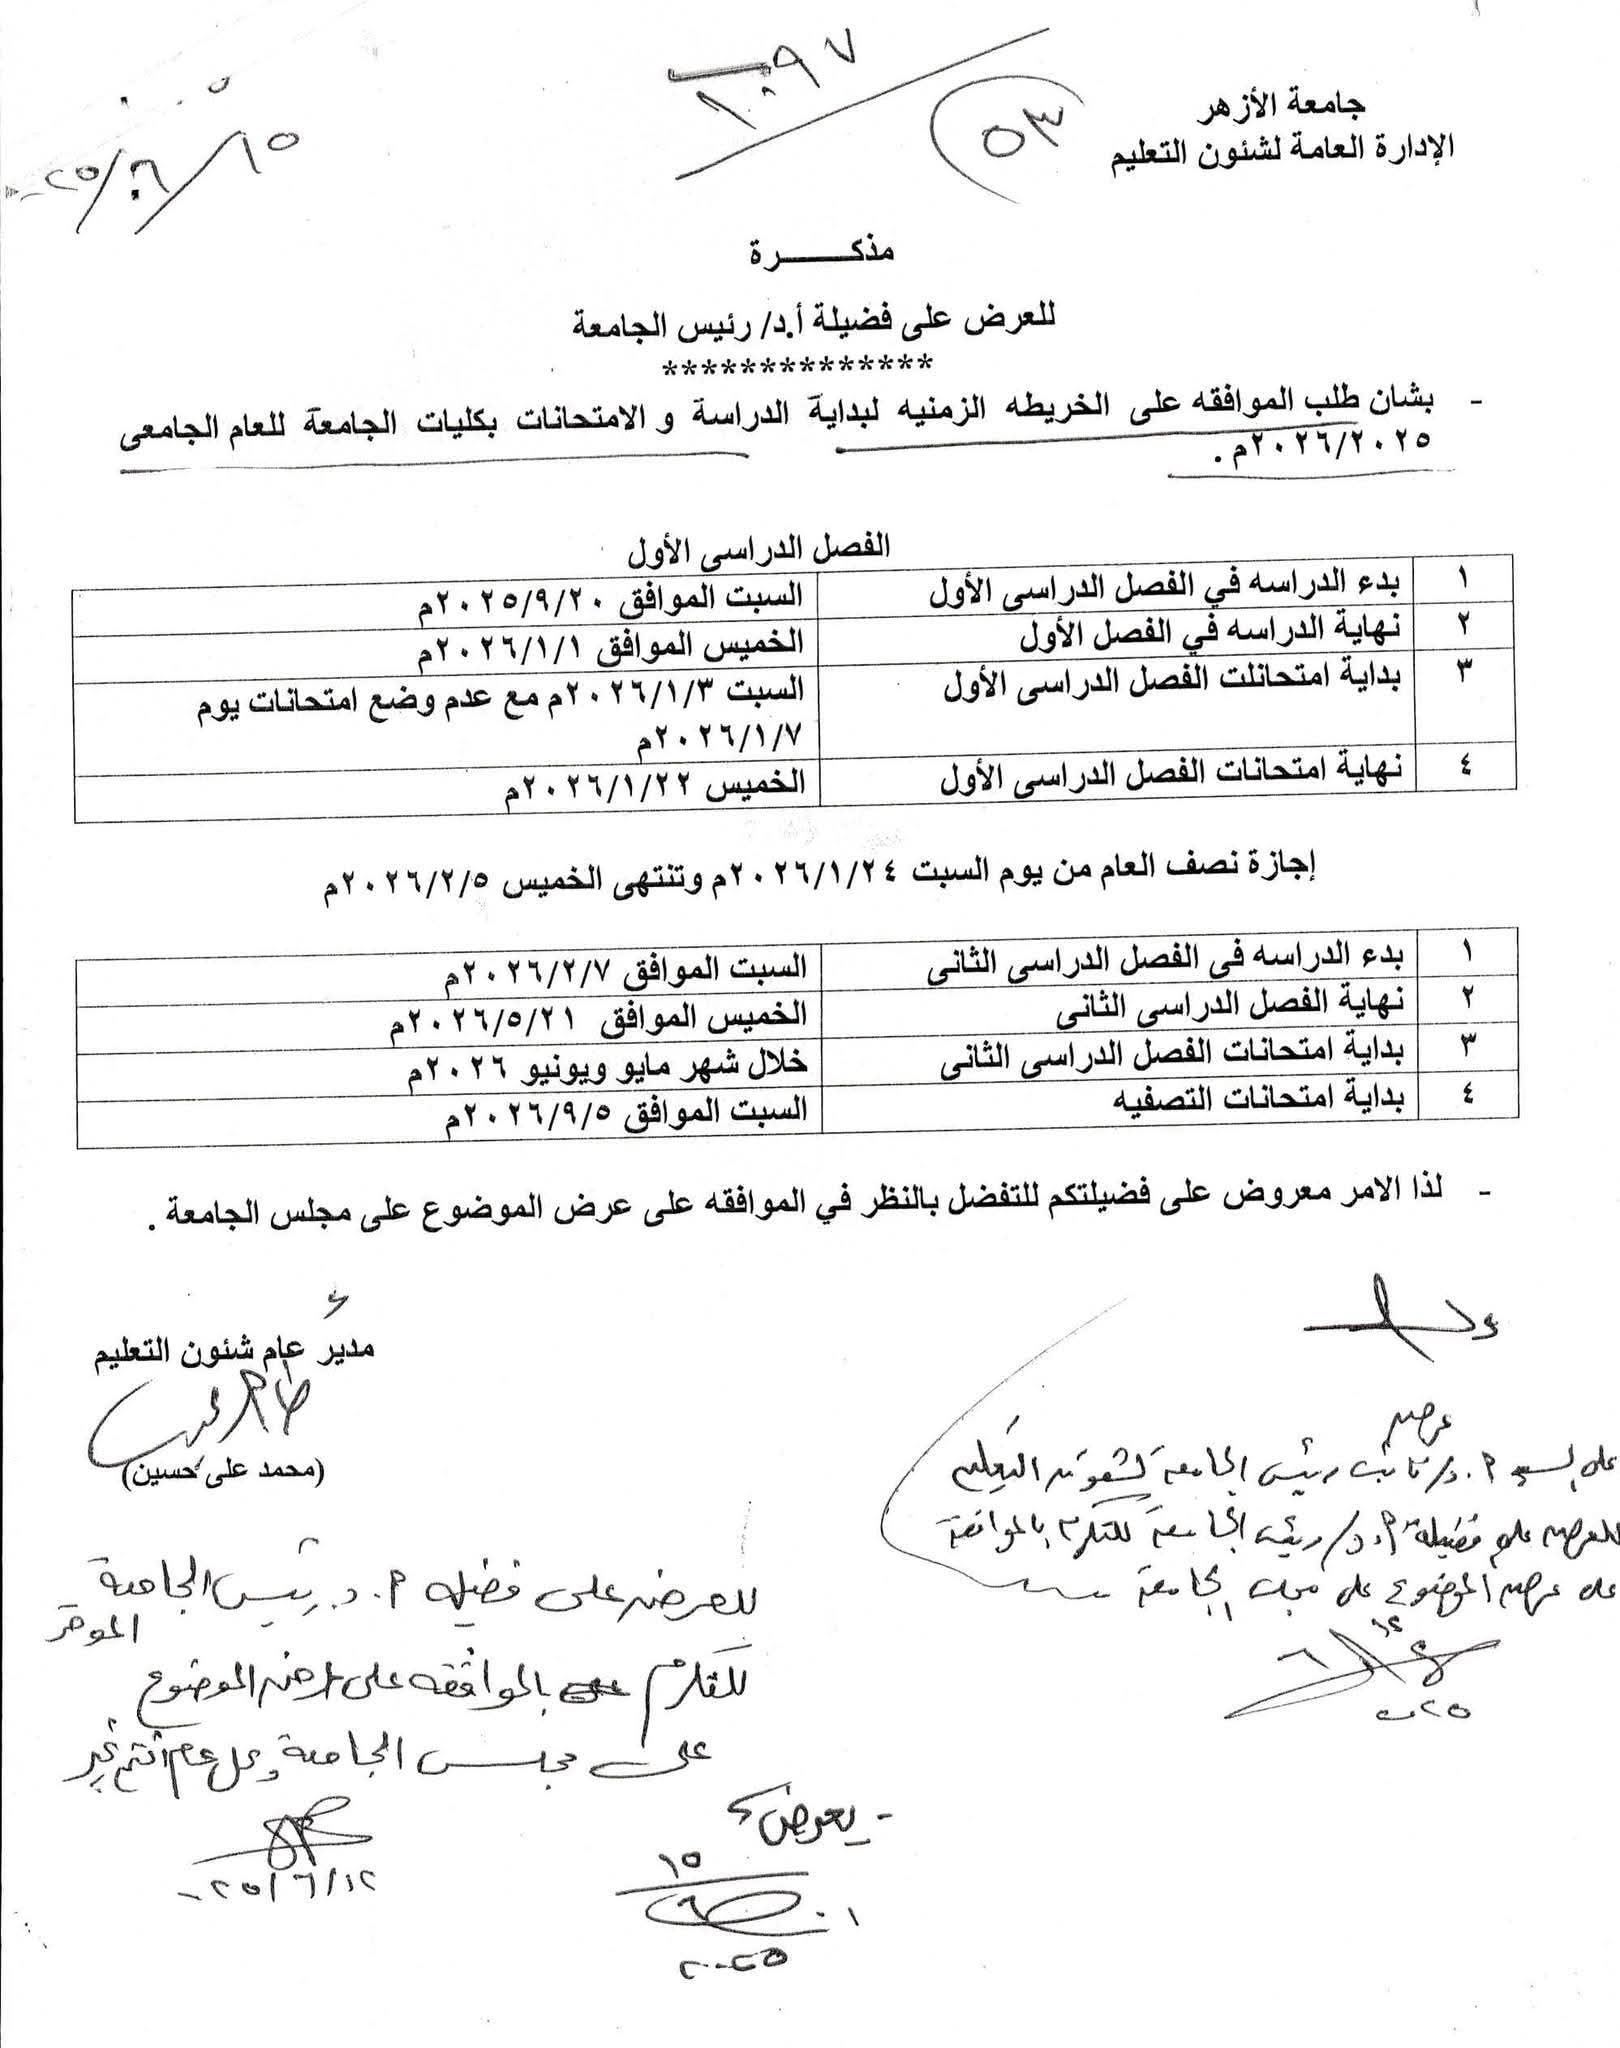 ١٠٩٧
٥٣
٢٠٢٥/٦/١٥
جامعة الأزهر
الإدارة العامة لشئون التعليم
مذكــــــرة
للعرض على فضيلة أ.د/ رئيس الجامعة
**************
- بشان طلب الموافقه على الخريطه الزمنيه لبداية الدراسة و الامتحانات بكليات الجامعة للعام الجامعى
٢٠٢٦/٢٠٢٥م .
الفصل الدراسى الأول
١ بدء الدراسه في الفصل الدراسى الأول السبت الموافق ٢٠٢٥/٩/٢٠م
٢ نهاية الدراسه في الفصل الأول الخميس الموافق ٢٠٢٦/١/١م
٣ بداية امتحانلت الفصل الدراسى الأول السبت ٢٠٢٦/١/٣م مع عدم وضع امتحانات يوم
٢٠٢٦/١/٧م
٤ نهاية امتحانات الفصل الدراسى الأول الخميس ٢٠٢٦/١/٢٢م
إجازة نصف العام من يوم السبت ٢٠٢٦/١/٢٤م وتنتهى الخميس ٢٠٢٦/٢/٥م
١ بدء الدراسه فى الفصل الدراسى الثانى السبت الموافق ٢٠٢٦/٢/٧م
٢ نهاية الفصل الدراسى الثانى الخميس الموافق ٢٠٢٦/٥/٢١م
٣ بداية امتحانات الفصل الدراسى الثانى خلال شهر مايو ويونيو ٢٠٢٦م
٤ بداية امتحانات التصفيه السبت الموافق ٢٠٢٦/٩/٥م
- لذا الامر معروض على فضيلتكم للتفضل بالنظر في الموافقه على عرض الموضوع على مجلس الجامعة .
مدير عام شئون التعليم
(محمد على حسين)
على السيد أ.د/ نائب رئيس الجامعة لشئون التعليم
للعرض على فضيلة أ.د/ رئيس الجامعة للتكرم بالموافقة
على عرض الموضوع على مجلس الجامعة
١٢
٦
٢٠٢٥
للعرض على فضيلة أ.د. رئيس الجامعة
الموقر
للتكرم بالموافقة على عرض الموضوع
على مجلس الجامعة وكل عام أنتم بخير
٢٠٢٥/٦/١٢
- يعرض
١٥
٦
٢٠٢٥